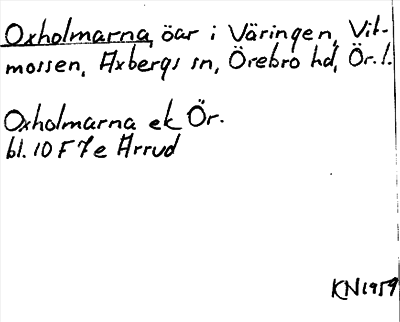 Oxholmarna, öar i Väringen, Vit-
mossen, Axbergs sn, Örebro hd, Ör. l.
Oxholmarna ek Ör.
bl. 10 F 7 e Ärrud
KN 1959